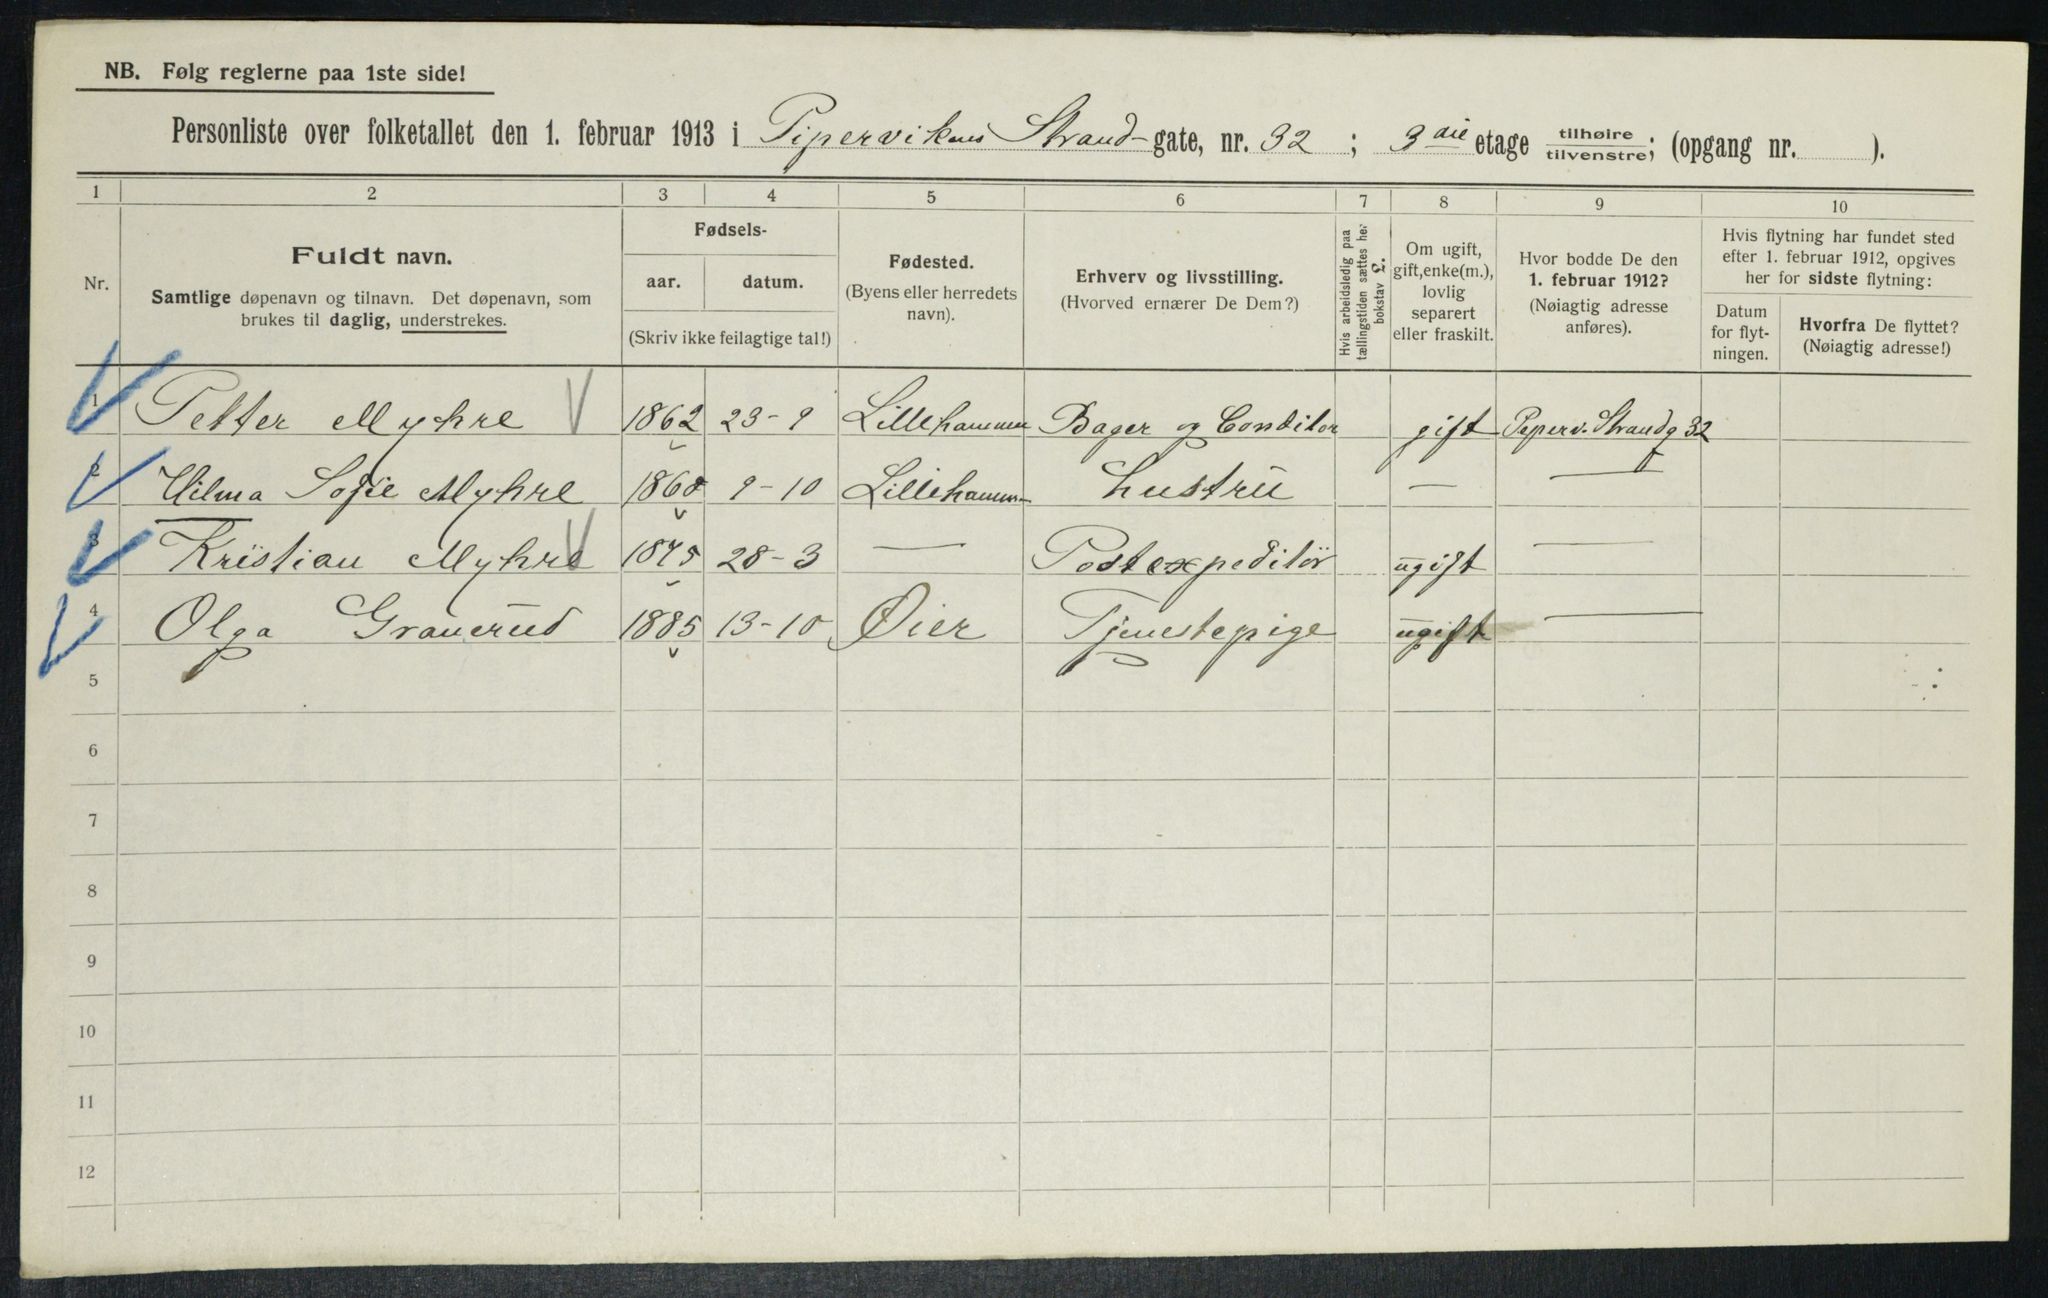 NB. Følg reglerne paa 1ste side!
Personliste over folketallet den 1. februar 1913 i Pipervikens Strand-gate, nr. 32; 3die etage tilhøire tilvenstre; (opgang nr. ).
1 2 3 4 5 6 7 8 9 10
Nr.
Fuldt navn.
Samtlige døpenavn og tilnavn. Det døpenavn, som
brukes til daglig, understrekes.
Fødsels-
aar. datum.
(Skriv ikke feilagtige tal!)
Fødested.
(Byens eller herredets
navn).
Erhverv og livsstilling.
(Hvorved ernærer De Dem?)
Hvis arbeidsledig paa
tællingstiden sættes her
bokstav L.
Om ugift,
gift, enke(m.),
lovlig
separert
eller fraskilt.
Hvor bodde De den
1. februar 1912?
(Nøiagtig adresse
anføres).
Hvis flytning har fundet sted
efter 1. februar 1912, opgives
her for sidste flytning:
Datum
for flyt-
ningen.
Hvorfra De flyttet?
(Nøiagtig adresse!)
1 Petter Myhre 1862 23-9 Lillehammer Bager og Conditor gift Piperv. Strandg 32
2 Wilma Sofie Myhre 9-10 Lillehamm- Hustru —
3 Kristian Myhre 1875 28-3 — Postexpeditør ugift —
4 Olga Grauerud 1885 13-10 Øier Tjenestepige ugift —
5
6
7
8
9
10
11
12